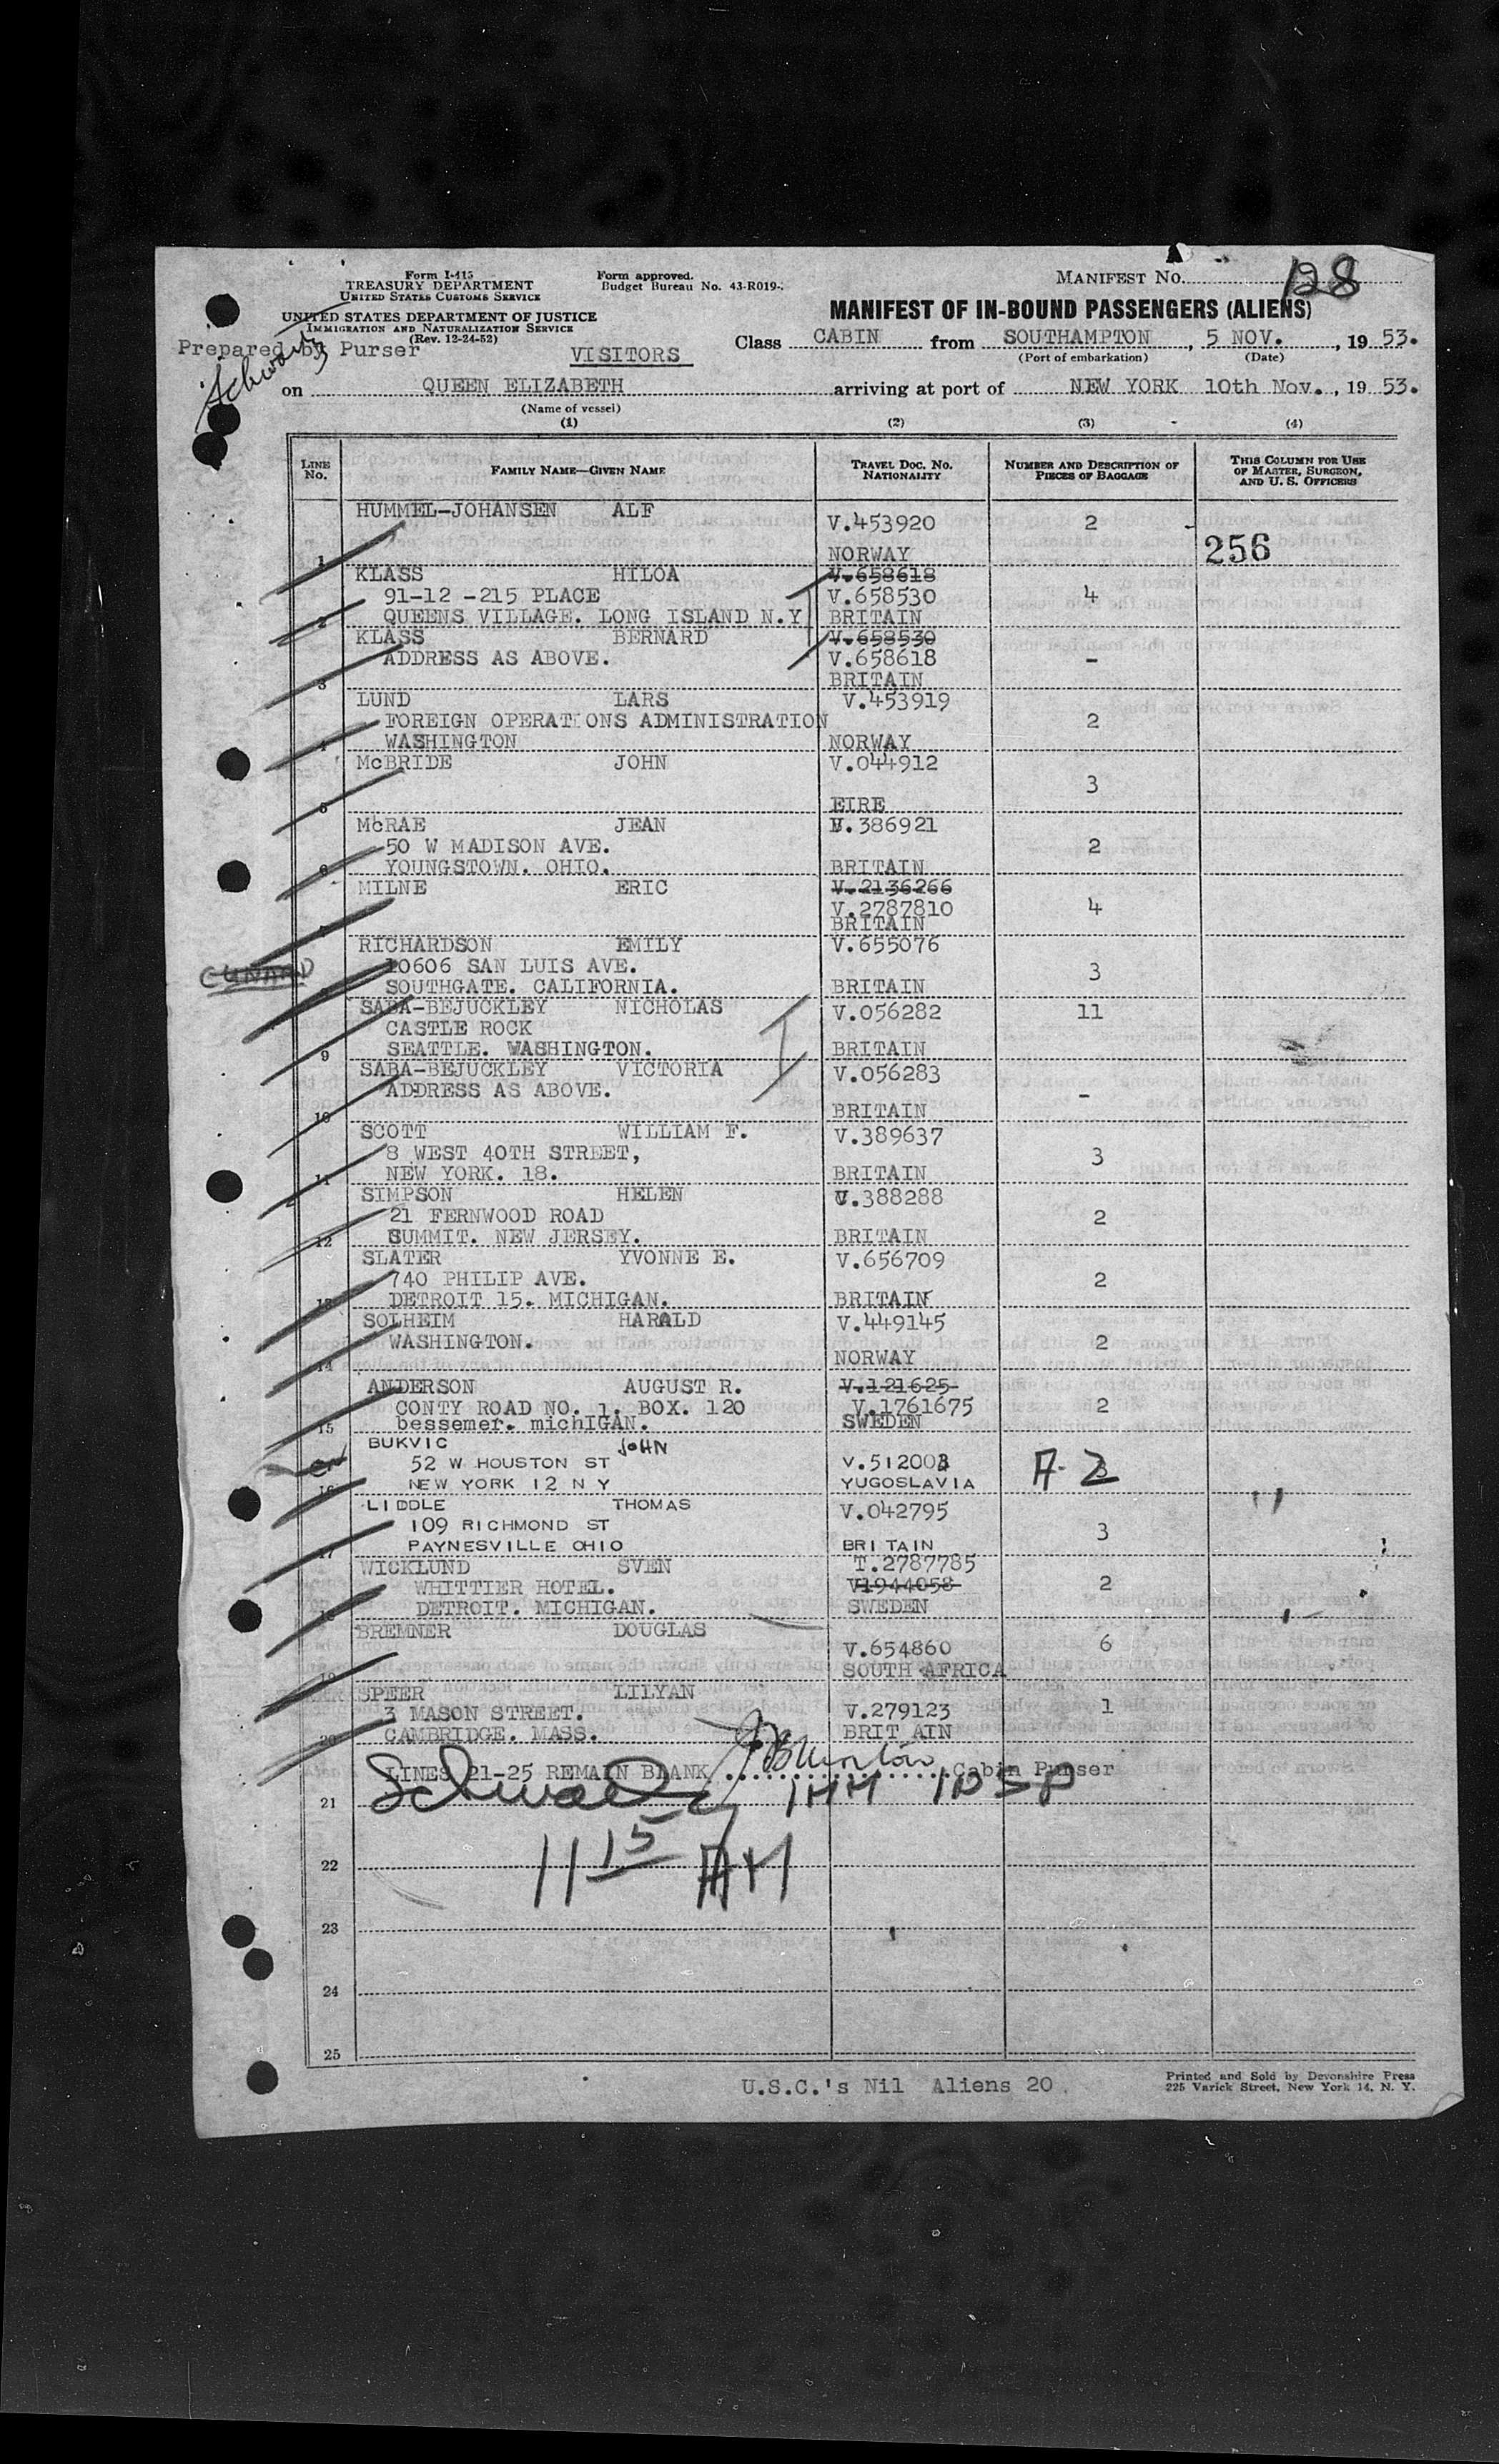 Form I-415
TREASURY DEPARTMENT
UNITED STATES CUSTOMS SERVICE
UNITED STATES DEPARTMENT OF JUSTICE
IMMIGRATION AND NATURALIZATION SERVICE
(Rev. 12-24-52)
Form approved.
Budget Bureau No. 43-R019-
MANIFEST NO. 128
MANIFEST OF IN-BOUND PASSENGERS (ALIENS)
Prepared by Purser
Schwartz
VISITORS
Class CABIN from SOUTHAMPTON, 5 NOV., 1953.
(Port of embarkation) (Date)
on QUEEN ELIZABETH arriving at port of NEW YORK 10th Nov., 1953.
(Name of vessel)
(1) (2) (3) (4)
LINE No. FAMILY NAME—GIVEN NAME TRAVEL DOC. NO. NATIONALITY NUMBER AND DESCRIPTION OF PIECES OF BAGGAGE THIS COLUMN FOR USE OF MASTER, SURGEON, AND U. S. OFFICERS
HUMMEL-JOHANSEN ALF
V.453920 2
256
1 NORWAY
KLASS HILOA V.658618
91-12 -215 PLACE V.658530 4
2 QUEENS VILLAGE. LONG ISLAND N.Y. BRITAIN
KLASS BERNARD V.658530
ADDRESS AS ABOVE. V.658618 -
3 BRITAIN
LUND LARS V.453919
FOREIGN OPERATIONS ADMINISTRATION 2
4 WASHINGTON NORWAY
McBRIDE JOHN V.044912
3
5 EIRE
McRAE JEAN V.386921
50 W MADISON AVE. 2
6 YOUNGSTOWN. OHIO. BRITAIN
MILNE ERIC V.2136266
V.2787810 4
7 BRITAIN
RICHARDSON EMILY V.655076
CUNARD
10606 SAN LUIS AVE. 3
8 SOUTHGATE. CALIFORNIA. BRITAIN
SABA-BEJUCKLEY NICHOLAS V.056282 11
CASTLE ROCK
9 SEATTLE. WASHINGTON. BRITAIN
SABA-BEJUCKLEY VICTORIA V.056283
ADDRESS AS ABOVE. -
10 BRITAIN
SCOTT WILLIAM F. V.389637
8 WEST 40TH STREET, 3
11 NEW YORK. 18. BRITAIN
SIMPSON HELEN V.388288
21 FERNWOOD ROAD 2
12 SUMMIT. NEW JERSEY. BRITAIN
SLATER YVONNE E. V.656709
740 PHILIP AVE. 2
13 DETROIT 15. MICHIGAN. BRITAIN
SOLHEIM HARALD V.449145
WASHINGTON. 2
14 NORWAY
ANDERSON AUGUST R. V.121625
CONTY ROAD NO. 1. BOX. 120 V.1761675 2
15 bessemer. michIGAN. SWEDEN
BUKVIC JOHN
52 W HOUSTON ST V.512003 A-2
16 NEW YORK 12 N Y YUGOSLAVIA
LIDDLE THOMAS V.042795
109 RICHMOND ST 3
17 PAYNESVILLE OHIO BRITAIN
WICKLUND SVEN T.2787785
WHITTIER HOTEL. V1944058 2
18 DETROIT. MICHIGAN. SWEDEN
BREMNER DOUGLAS
V.654860 6
19 SOUTH AFRICA
SPEER LILYAN
3 MASON STREET. V.279123 1
20 CAMBRIDGE. MASS. BRIT AIN
LINES 21-25 REMAIN BLANK. Cabin Purser
21 Schwartz IMM INSP
22 11 15 AM
23
24
25
U.S.C.'s Nil Aliens 20
Printed and Sold by Devonshire Press
225 Varick Street, New York 14, N. Y.